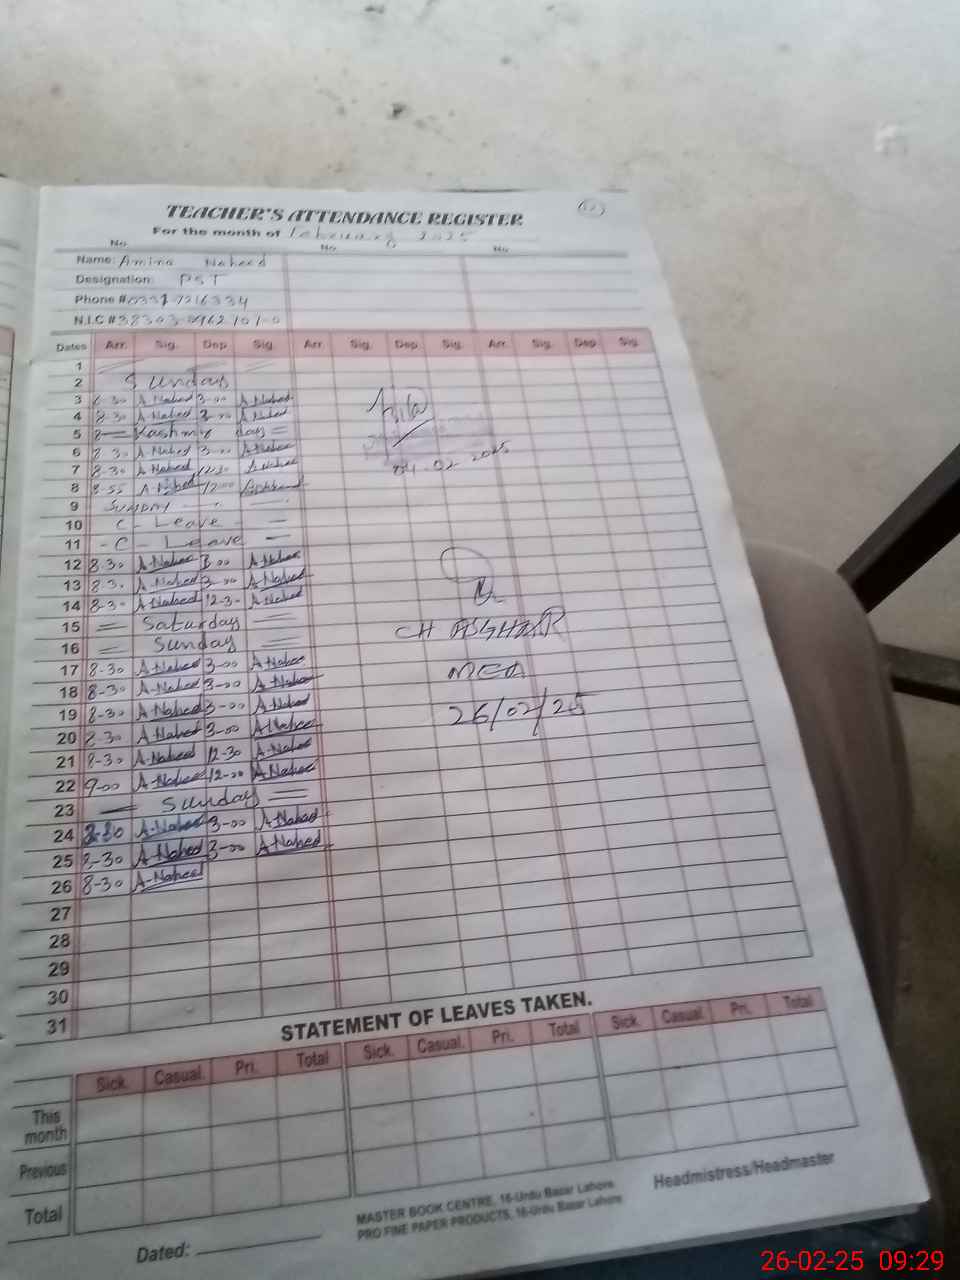 TEACHER'S ATTENDANCE REGISTER
For the month of February 2025
No. No. No.
Name: Amina Naheed
Designation: PST
Phone #0331 7216334
N.I.C #
Dates Arr. Sig. Dep. Sig. Arr. Sig. Dep. Sig. Arr. Sig. Dep. Sig.
1
2 Sunday
3 8-30 A Naheed 3-00 A Naheed
4 8-30 A Naheed 3-00 A Naheed
5 Kashmir day
6 8-30 A-Naheed 3-00 A-Naheed
7 8-30 A-Naheed 12-30 A Naheed
8 8-55 A-Naheed 12-00
9 SUNDAY
10 C - Leave
11 - C - Leave
12 8-30 A-Naheed 3-00 A-Naheed
13 8-30 A-Naheed 3-00 A-Naheed
14 8-30 A-Naheed 12-30 A-Naheed
15 Saturday
16 Sunday
17 8-30 A-Naheed 3-00 A-Naheed
18 8-30 A-Naheed 3-00 A-Naheed
19 8-30 A-Naheed 3-00 A-Naheed
20 8-30 A-Naheed 3-00 A-Naheed
21 8-30 A-Naheed 12-30 A-Naheed
22 9-00 A-Naheed 12-00 A-Naheed
23 Sunday
24 8-30 A-Naheed 3-00 A-Naheed
25 8-30 A-Naheed 3-00 A-Naheed
26 8-30 A-Naheed
27
28
29
30
31
04-02 2025
CH ASGHAR
MEA
26/02/25
STATEMENT OF LEAVES TAKEN.
Sick. Casual. Pri. Total Sick. Casual. Pri. Total Sick. Casual. Pri. Total
This month
Previous
Total
MASTER BOOK CENTRE, 16-Urdu Bazar Lahore
PRO FINE PAPER PRODUCTS, 16-Urdu Bazar Lahore
Headmistress/Headmaster
Dated:
26-02-25 09:29